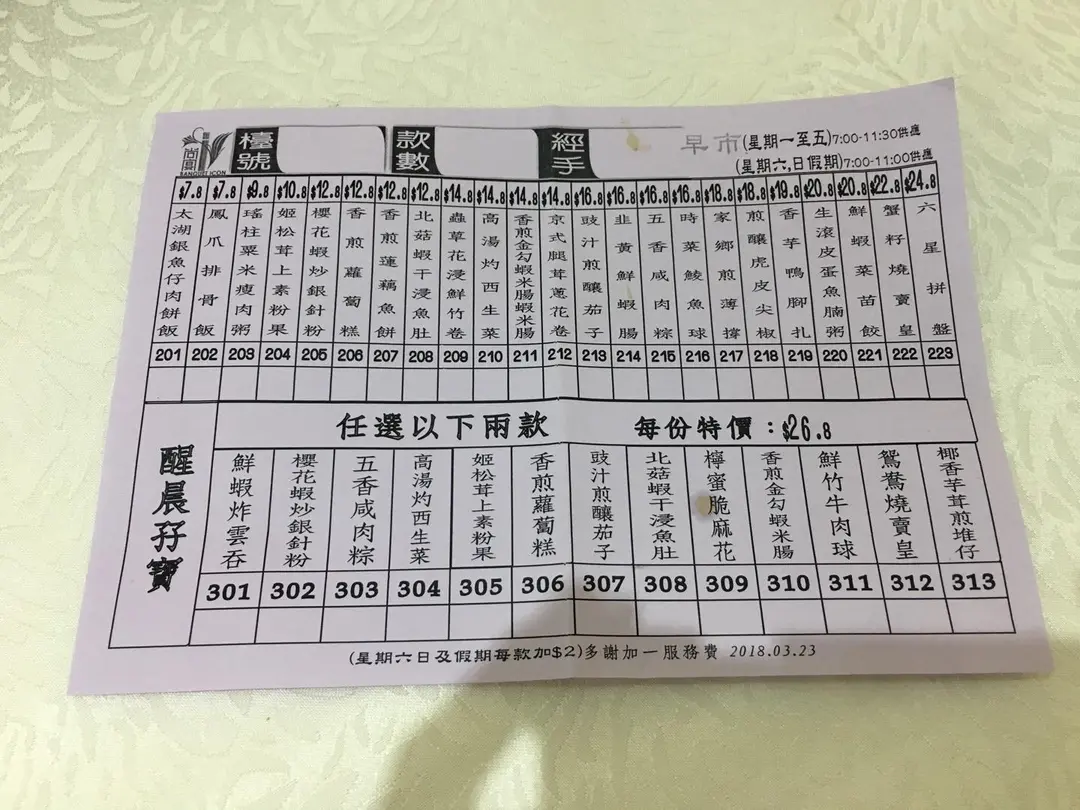 尚宴
BANQUET ICON
檯號
款數
經手
早市
(星期一至五)7:00-11:30供應
(星期六,日假期)7:00-11:00供應
$7.8 $7.8 $9.8 $10.8 $12.8 $12.8 $12.8 $12.8 $14.8 $14.8 $14.8 $14.8 $16.8 $16.8 $16.8 $16.8 $18.8 $18.8 $19.8 $20.8 $20.8 $22.8 $24.8
太湖銀魚仔肉餅飯
鳳爪排骨飯
瑤柱粟米瘦肉粥
姬松茸上素粉果
櫻花蝦炒銀針粉
香煎蘿蔔糕
香煎蓮藕魚餅
北菇蝦干浸魚肚
蟲草花浸鮮竹卷
高湯灼西生菜
香煎金勾蝦米腸蝦米腸
京式腿茸蔥花卷
豉汁煎釀茄子
韭黃鮮蝦腸
五香咸肉粽
時菜鯪魚球
家鄉煎薄撐
煎釀虎皮尖椒
香芋鴨腳扎
生滾皮蛋魚腩粥
鮮蝦菜苗餃
蟹籽燒賣皇
六星拼盤
201 202 203 204 205 206 207 208 209 210 211 212 213 214 215 216 217 218 219 220 221 222 223
醒晨孖寶
任選以下兩款 每份特價：$26.8
鮮蝦炸雲吞
櫻花蝦炒銀針粉
五香咸肉粽
高湯灼西生菜
姬松茸上素粉果
香煎蘿蔔糕
豉汁煎釀茄子
北菇蝦干浸魚肚
檸蜜脆麻花
香煎金勾蝦米腸
鮮竹牛肉球
鴛鴦燒賣皇
椰香芋茸煎堆仔
301 302 303 304 305 306 307 308 309 310 311 312 313
(星期六日及假期每款加$2)多謝加一服務費 2018.03.23